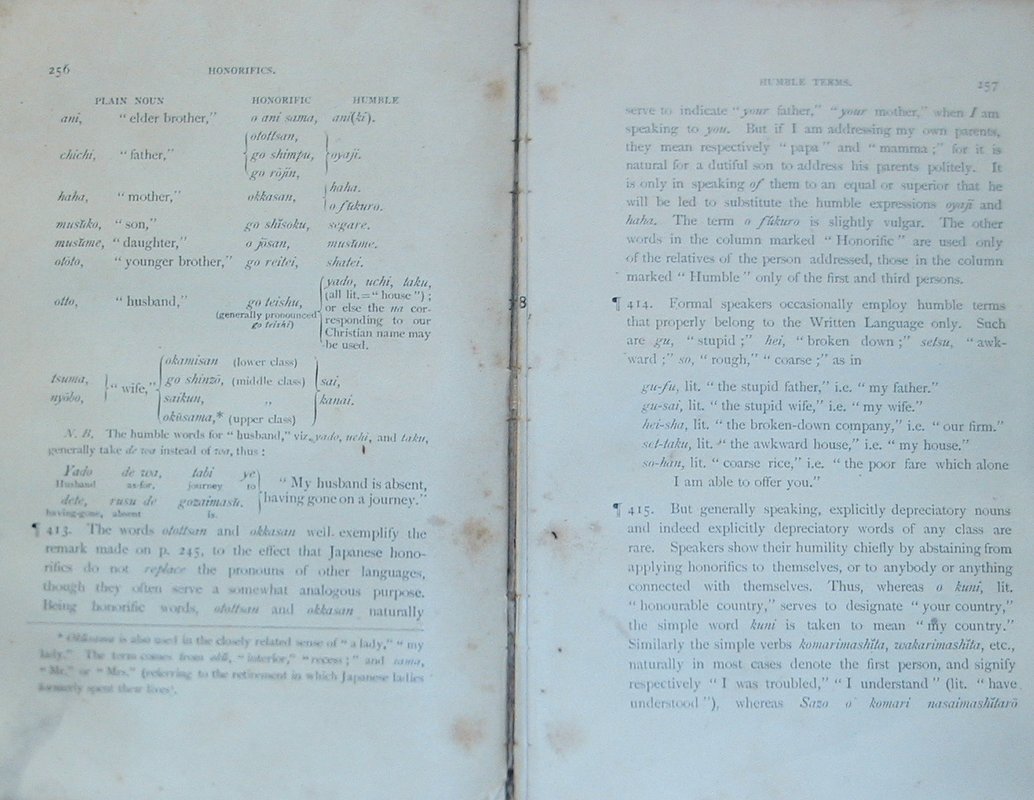 256 HONORIFICS.
PLAIN NOUN HONORIFIC HUMBLE
ani, “ elder brother,” o ani sama, ani(ki).
ototsan,
chichi, “ father,” go shimpu, oyaji.
go rōjin,
haha, “ mother,” okkasan, haha.
o fŭkuro.
musŭko, “ son,” go shisoku, segare.
musŭme, “ daughter,” o jōsan, musŭme.
otōto, “ younger brother,” go reitei, shatei.
yado, uchi, taku,
(all lit. = “ house ”) ;
otto, “ husband,” go teishu, or else the na cor-
(generally pronounced responding to our
go teishi) Christian name may
be used.
okamisan (lower class)
tsuma, “ wife,” go shinzō, (middle class) sai,
nyōbo, saikun, ,, kanai.
okŭsama,* (upper class)
N. B. The humble words for “ husband,” viz. yado, uchi, and taku,
generally take de wa instead of wa, thus :
Yado de wa, tabi ye
Husband as-for, journey to “ My husband is absent,
dete, rusu de gozaimasŭ. having gone on a journey.”
having-gone, absent is.
¶ 413. The words ototsan and okkasan well exemplify the
remark made on p. 245, to the effect that Japanese hono-
rifics do not replace the pronouns of other languages,
though they often serve a somewhat analogous purpose.
Being honorific words, ototsan and okkasan naturally
* Okŭsama is also used in the closely related sense of “ a lady,” “ my
lady.” The term comes from oku, “ interior,” “ recess ; ” and sama,
“ Mr.” or “ Mrs.” (referring to the retirement in which Japanese ladies
formerly spent their lives).
HUMBLE TERMS. 157
serve to indicate “ your father,” “ your mother,” when I am
speaking to you. But if I am addressing my own parents,
they mean respectively “ papa ” and “ mamma ;” for it is
natural for a dutiful son to address his parents politely. It
is only in speaking of them to an equal or superior that he
will be led to substitute the humble expressions oyaji and
haha. The term o fŭkuro is slightly vulgar. The other
words in the column marked “ Honorific ” are used only
of the relatives of the person addressed, those in the column
marked “ Humble ” only of the first and third persons.
¶ 414. Formal speakers occasionally employ humble terms
that properly belong to the Written Language only. Such
are gu, “ stupid ;” hei, “ broken down ;” setsu, “ awk-
ward ;” so, “ rough,” “ coarse ;” as in
gu-fu, lit. “ the stupid father,” i.e. “ my father.”
gu-sai, lit. “ the stupid wife,” i.e. “ my wife.”
hei-sha, lit. “ the broken-down company,” i.e. “ our firm.”
set-taku, lit. “ the awkward house,” i.e. “ my house.”
so-han, lit. “ coarse rice,” i.e. “ the poor fare which alone
I am able to offer you.”
¶ 415. But generally speaking, explicitly depreciatory nouns
and indeed explicitly depreciatory words of any class are
rare. Speakers show their humility chiefly by abstaining from
applying honorifics to themselves, or to anybody or anything
connected with themselves. Thus, whereas o kuni, lit.
“ honourable country,” serves to designate “ your country,”
the simple word kuni is taken to mean “ my country.”
Similarly the simple verbs komarimashĭta, wakarimashĭta, etc.,
naturally in most cases denote the first person, and signify
respectively “ I was troubled,” “ I understand ” (lit. “ have
understood ”), whereas Sazo o komari nasaimashĭtarō